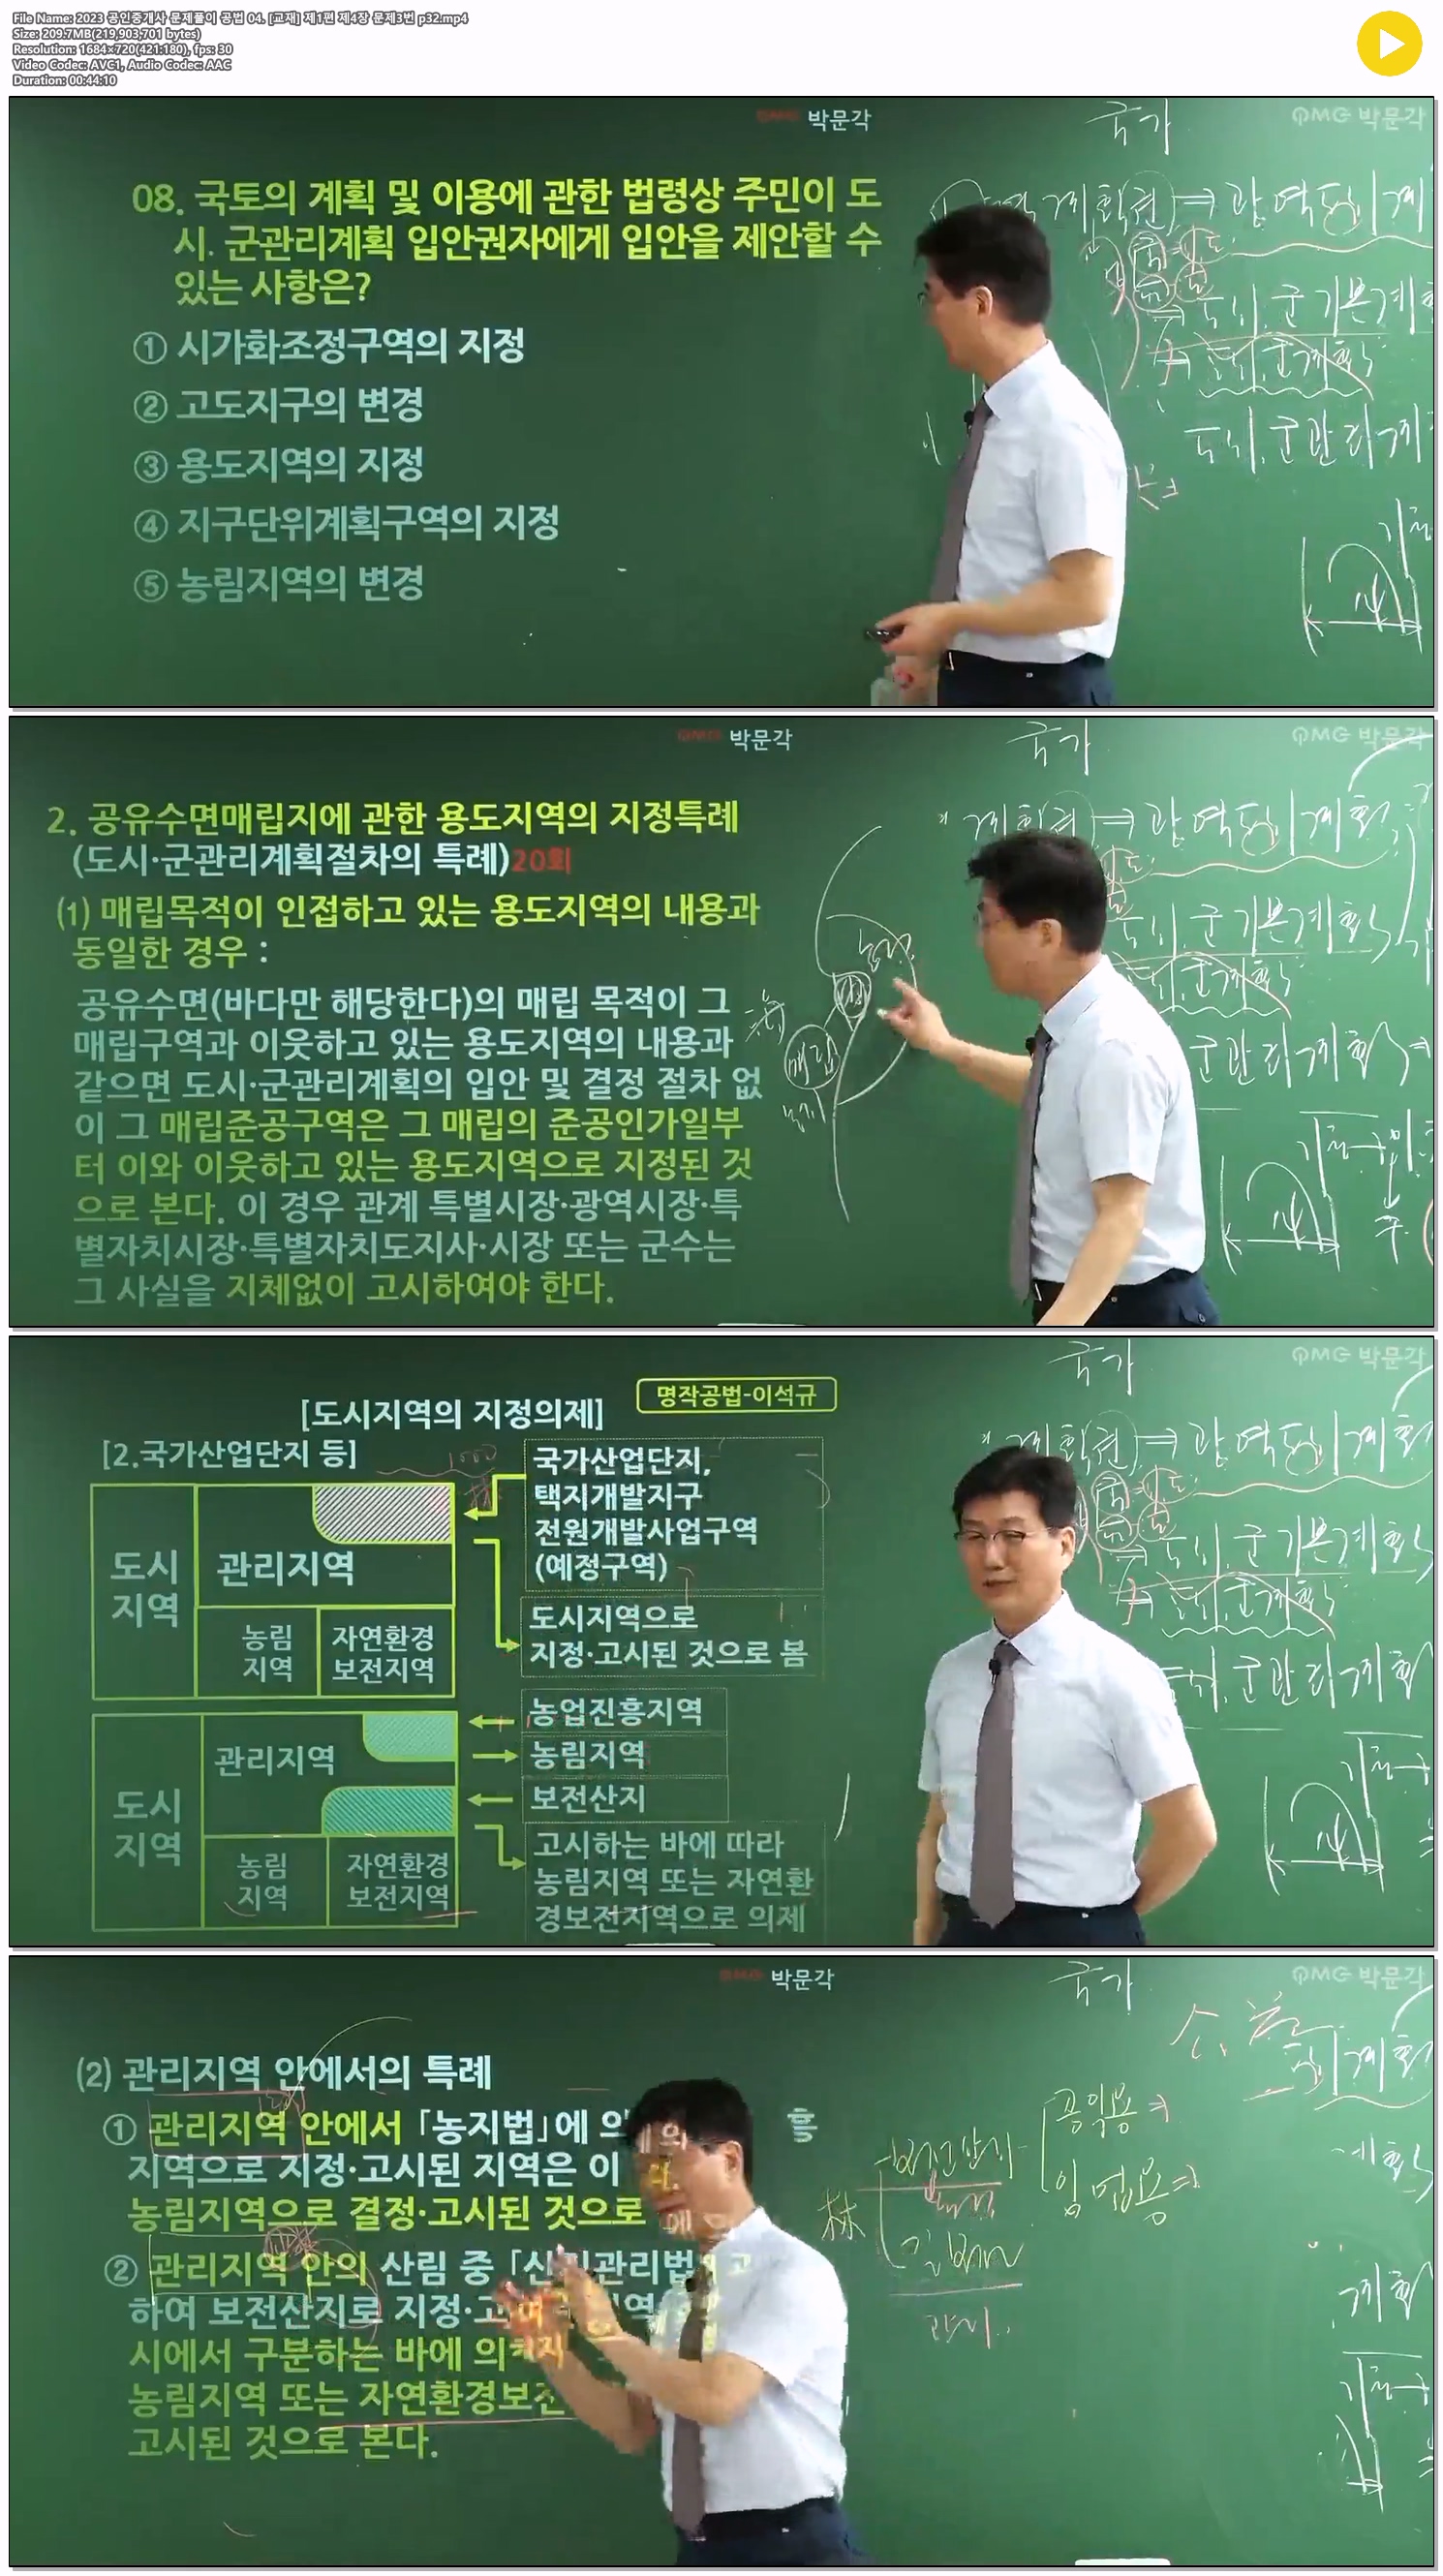 File Name: 2023 공인중개사 문제풀이 공법 04. [교재] 제1편 제4장 문제3번 p32.mp4
Size: 209.7MB(219,903,701 bytes)
Resolution: 1684x720(421:180), fps: 30
Video Codec: AVC1, Audio Codec: AAC
Duration: 00:44:10
박문각
국가
PMG 박문각
08. 국토의 계획 및 이용에 관한 법령상 주민이 도
시. 군관리계획 입안권자에게 입안을 제안할 수
있는 사항은?
① 시가화조정구역의 지정
② 고도지구의 변경
③ 용도지역의 지정
④ 지구단위계획구역의 지정
⑤ 농림지역의 변경
계획권) ⇒ 광역도시계
도시.군기본계획
도시.군계획
도시.군관리계획
PMG 박문각
국가
PMG 박문각
2. 공유수면매립지에 관한 용도지역의 지정특례
(도시·군관리계획절차의 특례)20회
(1) 매립목적이 인접하고 있는 용도지역의 내용과
동일한 경우 :
공유수면(바다만 해당한다)의 매립 목적이 그
매립구역과 이웃하고 있는 용도지역의 내용과
같으면 도시·군관리계획의 입안 및 결정 절차 없
이 그 매립준공구역은 그 매립의 준공인가일부
터 이와 이웃하고 있는 용도지역으로 지정된 것
으로 본다. 이 경우 관계 특별시장·광역시장·특
별자치시장·특별자치도지사·시장 또는 군수는
그 사실을 지체없이 고시하여야 한다.
매립
계획권) ⇒ 광역도시계획
군기본계획
군관리계획
국가
PMG 박문각
명작공법-이석규
[도시지역의 지정의제]
[2.국가산업단지 등]
도시
지역
관리지역
농림
지역
자연환경
보전지역
국가산업단지,
택지개발지구
전원개발사업구역
(예정구역)
도시지역으로
지정·고시된 것으로 봄
도시
지역
관리지역
농림
지역
자연환경
보전지역
농업진흥지역
농림지역
보전산지
고시하는 바에 따라
농림지역 또는 자연환
경보전지역으로 의제
계획권) ⇒ 광역도시계획
도시.군기본계획
도시.군계획
군관리계획
박문각
국가
PMG 박문각
(2) 관리지역 안에서의 특례
① 관리지역 안에서 「농지법」에 의
흥
지역으로 지정·고시된 지역은 이
농림지역으로 결정·고시된 것으로
② 관리지역 안의 산림 중 「산지관리법
하여 보전산지로 지정·고
시에서 구분하는 바에 의
농림지역 또는 자연환경보전
고시된 것으로 본다.
보전산지
공익용
임업용
林
계획